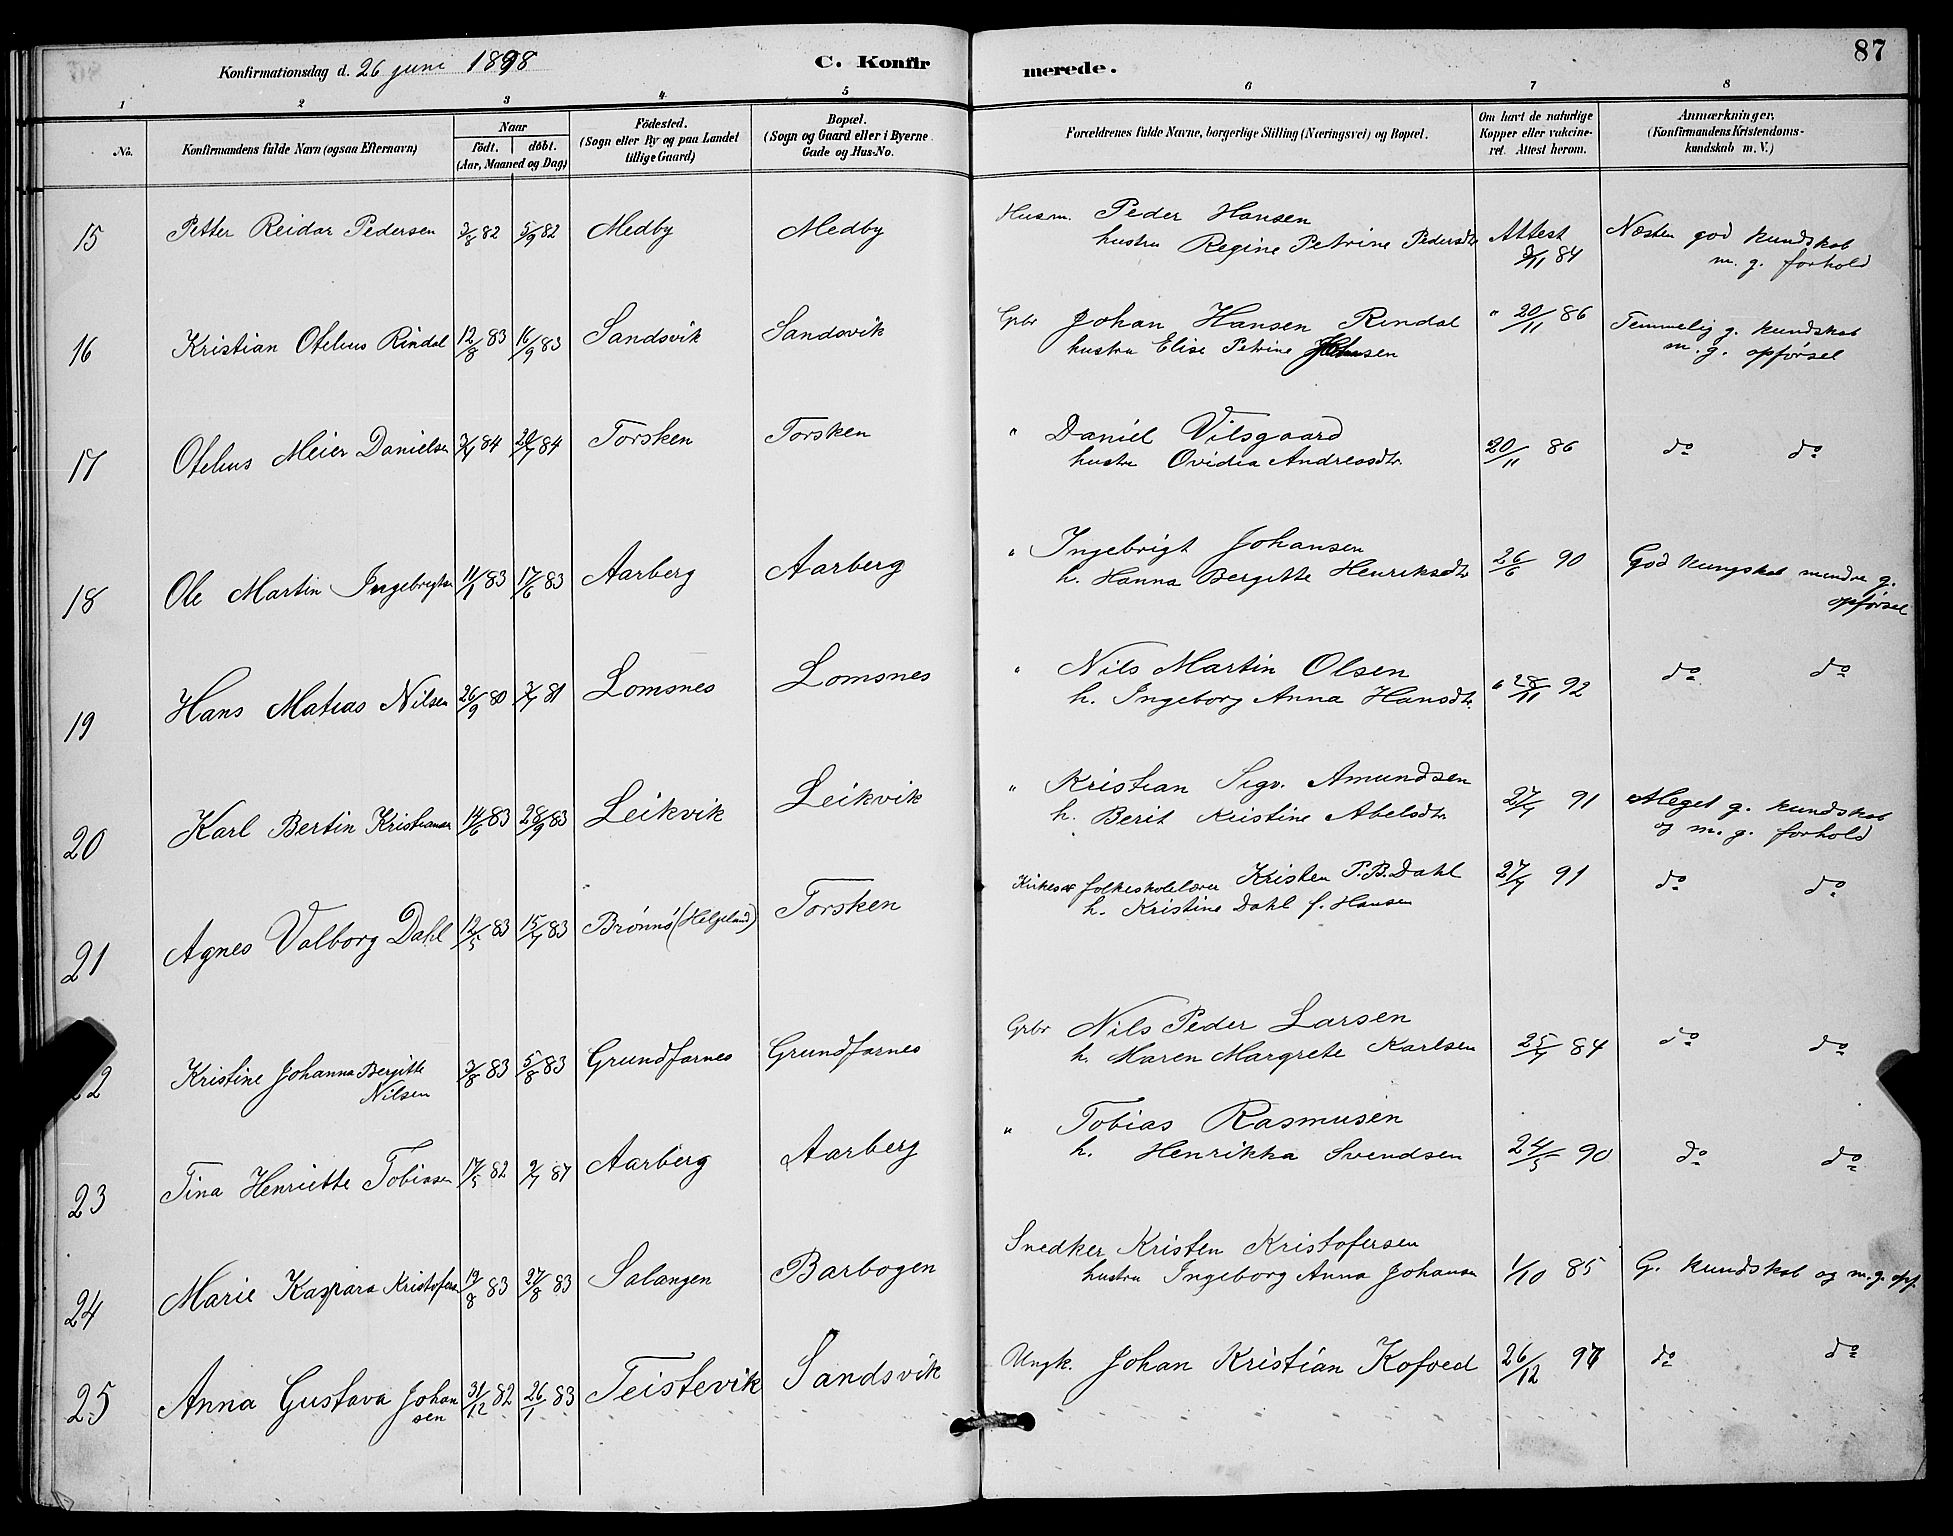 Konfirmationsdag d. 26 juni 1898
C. Konfir
merede.
87
1 2 3 4 5 6 7 8
No.
Konfirmandens fulde Navn (ogsaa Efternavn)
Naar
födt. döbt.
(Aar, Maaned og Dag)
Födested.
(Sogn eller By og paa Landet
tillige Gaard)
Bopæl.
(Sogn og Gaard eller i Byerne
Gade og Hus-No.
Forældrenes fulde Navne, borgerlige Stilling (Næringsvei) og Bopæl.
Om havt de naturlige
Kopper eller vakcine-
ret. Attest herom.
Anmærkninger.
(Konfirmandens Kristendoms-
kundskab m. V.)
15 Petter Reidar Pedersen 3/8 82 5/9 82 Medby Medby Husm. Peder Hansen
hustru Regine Petrine Pedersdtr Attest 3/11 84 Næsten god kundskab
m. g. forhold
16 Kristian Otelius Rindal 12/8 83 16/9 83 Sandsvik Sandsvik Gbr Johan Hansen Rindal " 20/11 86 Temmelig g. kundskab
hustru Elise Petrine m. g. opførsel
17 Otelius Meier Danielsen 84 84 Torsken Torsken " Daniel Vilsgaard
hustru Ovidia Andreasdtr. 20/11 86 do do
18 Ole Martin Ingebrigtsen 83 17/6 83 Aarberg Aarberg " Ingebrigt Johansen
h. Hanna Bergitte Henriksdtr 26/6 90 God kungskab mindre g.
opførsel
19 Hans Matias Nilsen 26/9 80 81 Lomsnes Lomsnes " Nils Martin Olsen
h. Ingeborg Anna Hansdtr. " 28/11 92 do do
20 Karl Bertin Kristiansen 14/6 83 28/9 83 Leikvik Leikvik " Kristian Sigv. Amundsen
h. Berit Kristine Abelsdtr 27/7 91 Meget g. kundskab
og m. g. forhold
21 Agnes Valborg Dahl 12/5 83 15/7 83 Brønnø (Helgeland) Torsken Kirkes. og folkeskolelærer Kristen P. B. Dahl
h. Kristine Dahl f. Hansen 27/7 91 do do
22 Kristine Johanna Bergitte
Nilsen 83 5/8 83 Grundfarnes Grundfarnes Grbr Nils Peder Larsen
h. Maren Margrete Karlsen 25/7 84 do do
23 Tina Henriette Tobiasen 17/5 82 87 Aarberg Aarberg " Tobias Rasmusen
h. Henrikka Svendsen 24/5 90 do do
24 Marie Kaspara Kristofersen 19/8 83 27/8 83 Salangen Barbogen Snedker Kristen Kristofersen
hustru Ingeborg Anna Johansen 1/10 85 G. kundskab og m. g. opf.
25 Anna Gustava Johan
sen 31/12 82 26/1 83 Teistevik Sandsvik Ungk. Johan Kristian Kofoed 26/12 97 do do